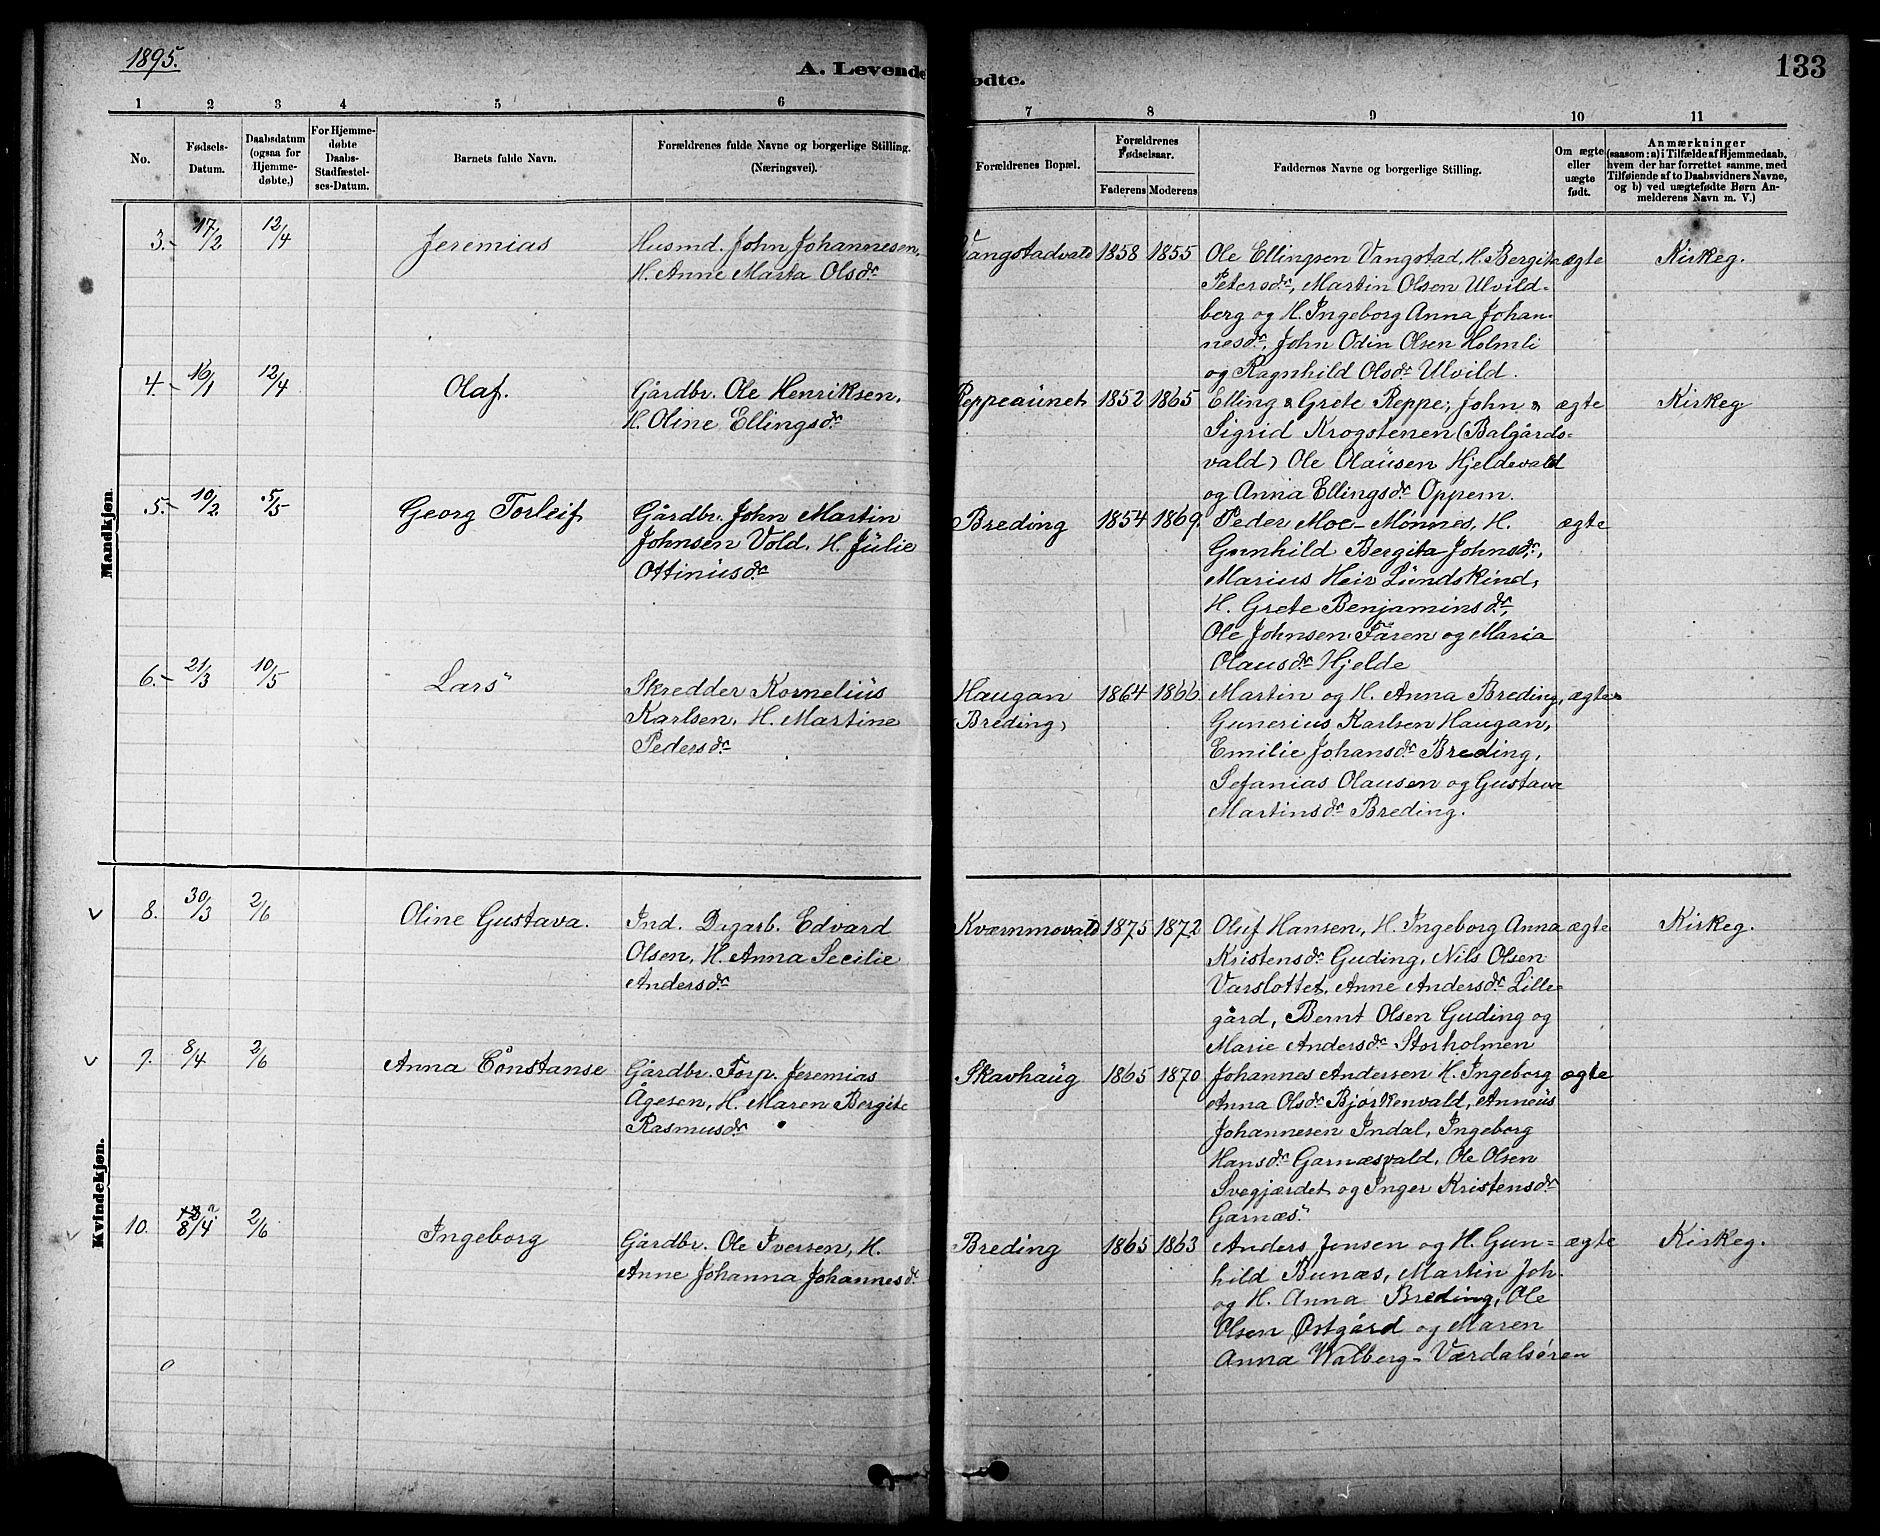 1895.
A. Levende
ødte.
133
1 2 3 4 5 6 7 8 9 10 11
No.
Fødsels-
Datum.
Daabsdatum
(ogsaa for
Hjemme-
døbte.)
For Hjemme-
døbte
Daabs-
Stadfæstel-
ses-Datum.
Barnets fulde Navn.
Forældrenes fulde Navne og borgerlige Stilling.
(Næringsvei).
Forældrenes Bopæl.
Forældrenes
Fødselsaar.
Faderens Moderens
Faddernes Navne og borgerlige Stilling.
Om ægte
eller
uægte
født.
Anmærkninger
(saasom: a) i Tilfælde af Hjemmedaab,
hvem der har forrettet samme, med
Tilføiende af to Daabsvidners Navne,
og b) ved uægtefødte Børn An-
melderens Navn m. V.)
Mandkjøn.
3. 17/2 12/4 Jeremias Husmd. John Johannesen, Vangstadvald 1858 1855 Ole Ellingsen Vangstad, H. Bergita ægte Kirkeg.
H. Anne Marta Olsdr. Petersdr., Martin Olsen Ulvild-
berg og H. Ingeborg Anna Johan-
nesdr., John Odin Olsen Holmli
og Ragnhild Olsdr. Ulvild.
4. 16/1 12/4 Olaf. Gårdbr. Ole Henriksen, Reppeaunet 1852 1865 Elling & Grete Reppe; John & ægte Kirkeg
H. Oline Ellingsdr. Sigrid Krogstenen (Balgårds-
vald) Ole Olausen Hjeldevald
og Anna Ellingsdr. Oppem.
5. 10/2 5/5 Georg Torleif Gårdbr. John Martin Breding 1854 1869. Peder Moe-Mönnes, H. ægte
Johnsen Vold. H. Julie Gunhild Bergita Johnsdr.,
Ottinusdr. Marius Heir Lundskind,
H. Grete Benjaminsdr.,
Ole Johnsen Faren og Maria
Olausdr. Hjelde
6. 21/3 10/5 Lars Skredder Kornelius Haugan 1864 1866 Martin og H. Anna Breding, ægte
Karlsen, H. Martine (Breding) Gunerius Karlsen Haugan,
Pedersdr. Emilie Johansdr. Breding,
Sefanias Olausen og Gustava
Martinsdr. Breding.
Kvindekjøn.
8. 30/3 2/6 Oline Gustava. Ind. Dagarb. Edvard Kværnmovald 1875 1872 Oluf Hansen, H. Ingeborg Anna ægte Kirkeg.
Olsen, H. Anna Secilie Kristensdr. Guding, Nils Olsen
Andersdr. Varslottet, Anne Andersdr. Lille-
gård, Bernt Olsen Guding og
Marie Andersdr. Storholmen
9. 8/4 2/6 Anna Constanse Gårdbr. Forp. Jeremias Skavhaug 1865 1870 Johannes Andersen H. Ingeborg ægte
Ågesen, H. Maren Bergite Anna Olsdr. Bjørkenvald, Anneus
Rasmusdr. Johannesen Indal, Ingeborg
Hansdr. Garnæsvald, Ole Olsen
Svegjærdet og Inger Kristensdr.
Garnæs.
10. 8/4 2/6 Ingeborg Gårdbr. Ole Iversen, H. Breding 1865 1863 Anders Jensen og H. Gun- ægte Kirkeg.
Anne Johanna Johannesdr. hild Bunæs, Martin Joh.
og H. Anna Breding, Ole
Olsen Østgård og Maren
Anna Walberg-Værdalsøren